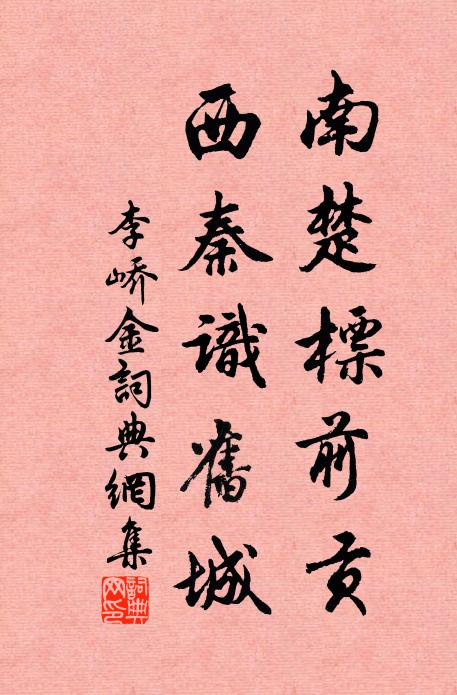 南楚標前貢
西秦識舊城
李嶠金詞典網集
詞典網印